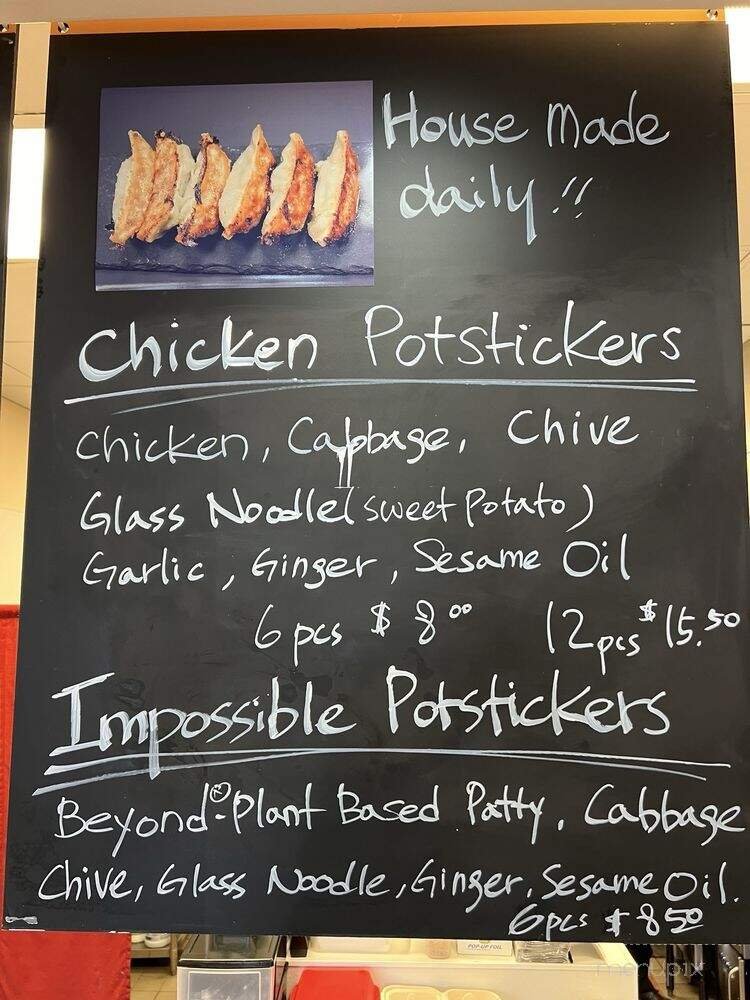 House Made
daily!!
Chicken Potstickers
Chicken, Cabbage, Chive
Glass Noodle (sweet potato)
Garlic, Ginger, Sesame Oil
6 pcs $8.00 12 pcs $15.50
Impossible Potstickers
Beyond®-Plant Based Patty, Cabbage
Chive, Glass Noodle, Ginger, Sesame Oil.
6pcs $8.50
POP-UP FOIL
menupix